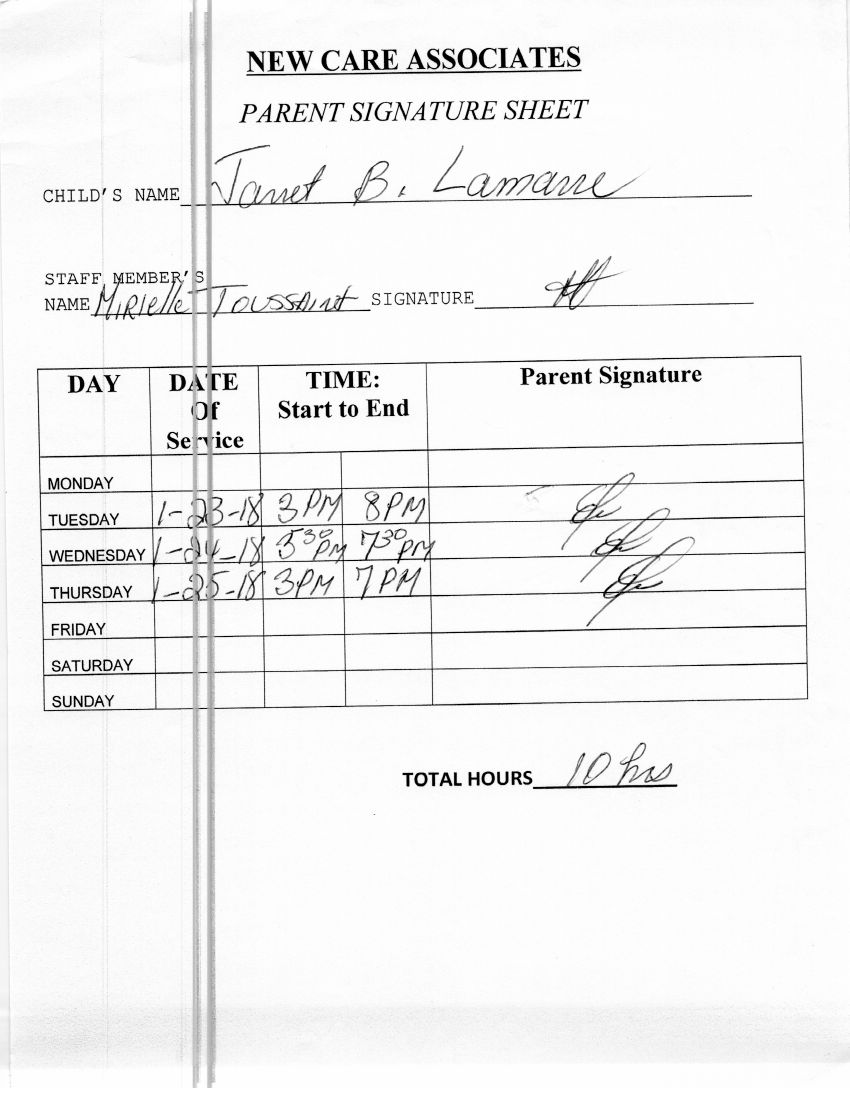 NEW CARE ASSOCIATES
PARENT SIGNATURE SHEET
CHILD'S NAME Janet B. Lamarre
STAFF MEMBER'S
NAME Mirielle Toussaint SIGNATURE
DAY DATE Of Service TIME: Start to End Parent Signature
MONDAY
TUESDAY 1-23-18 3PM 8PM
WEDNESDAY 1-24-18 530 PM 730 PM
THURSDAY 1-25-18 3PM 7PM
FRIDAY
SATURDAY
SUNDAY
TOTAL HOURS 10 hrs